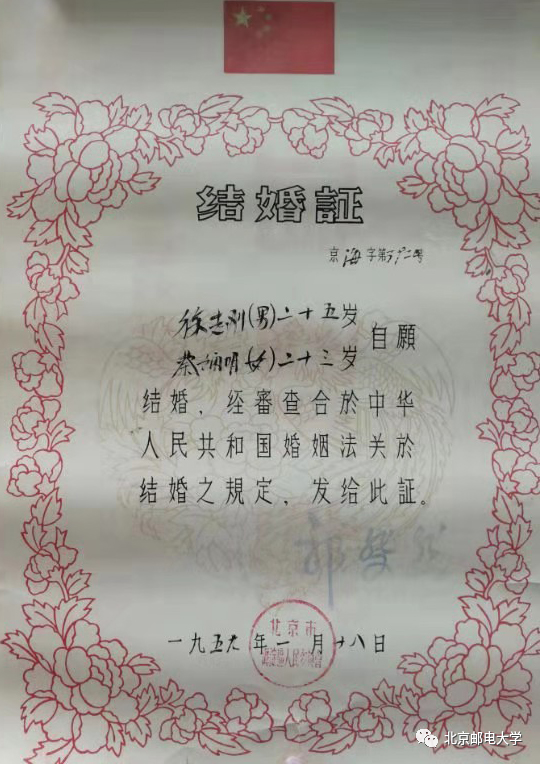 结婚証
京海字第 号
徐志刚(男)二十五岁
蔡炳明(女)二十三岁
自願
结婚，经審查合於中华
人民共和国婚姻法关於
结婚之規定，发给此証。
一九五九年二月十八日
北京市
北京邮电大学